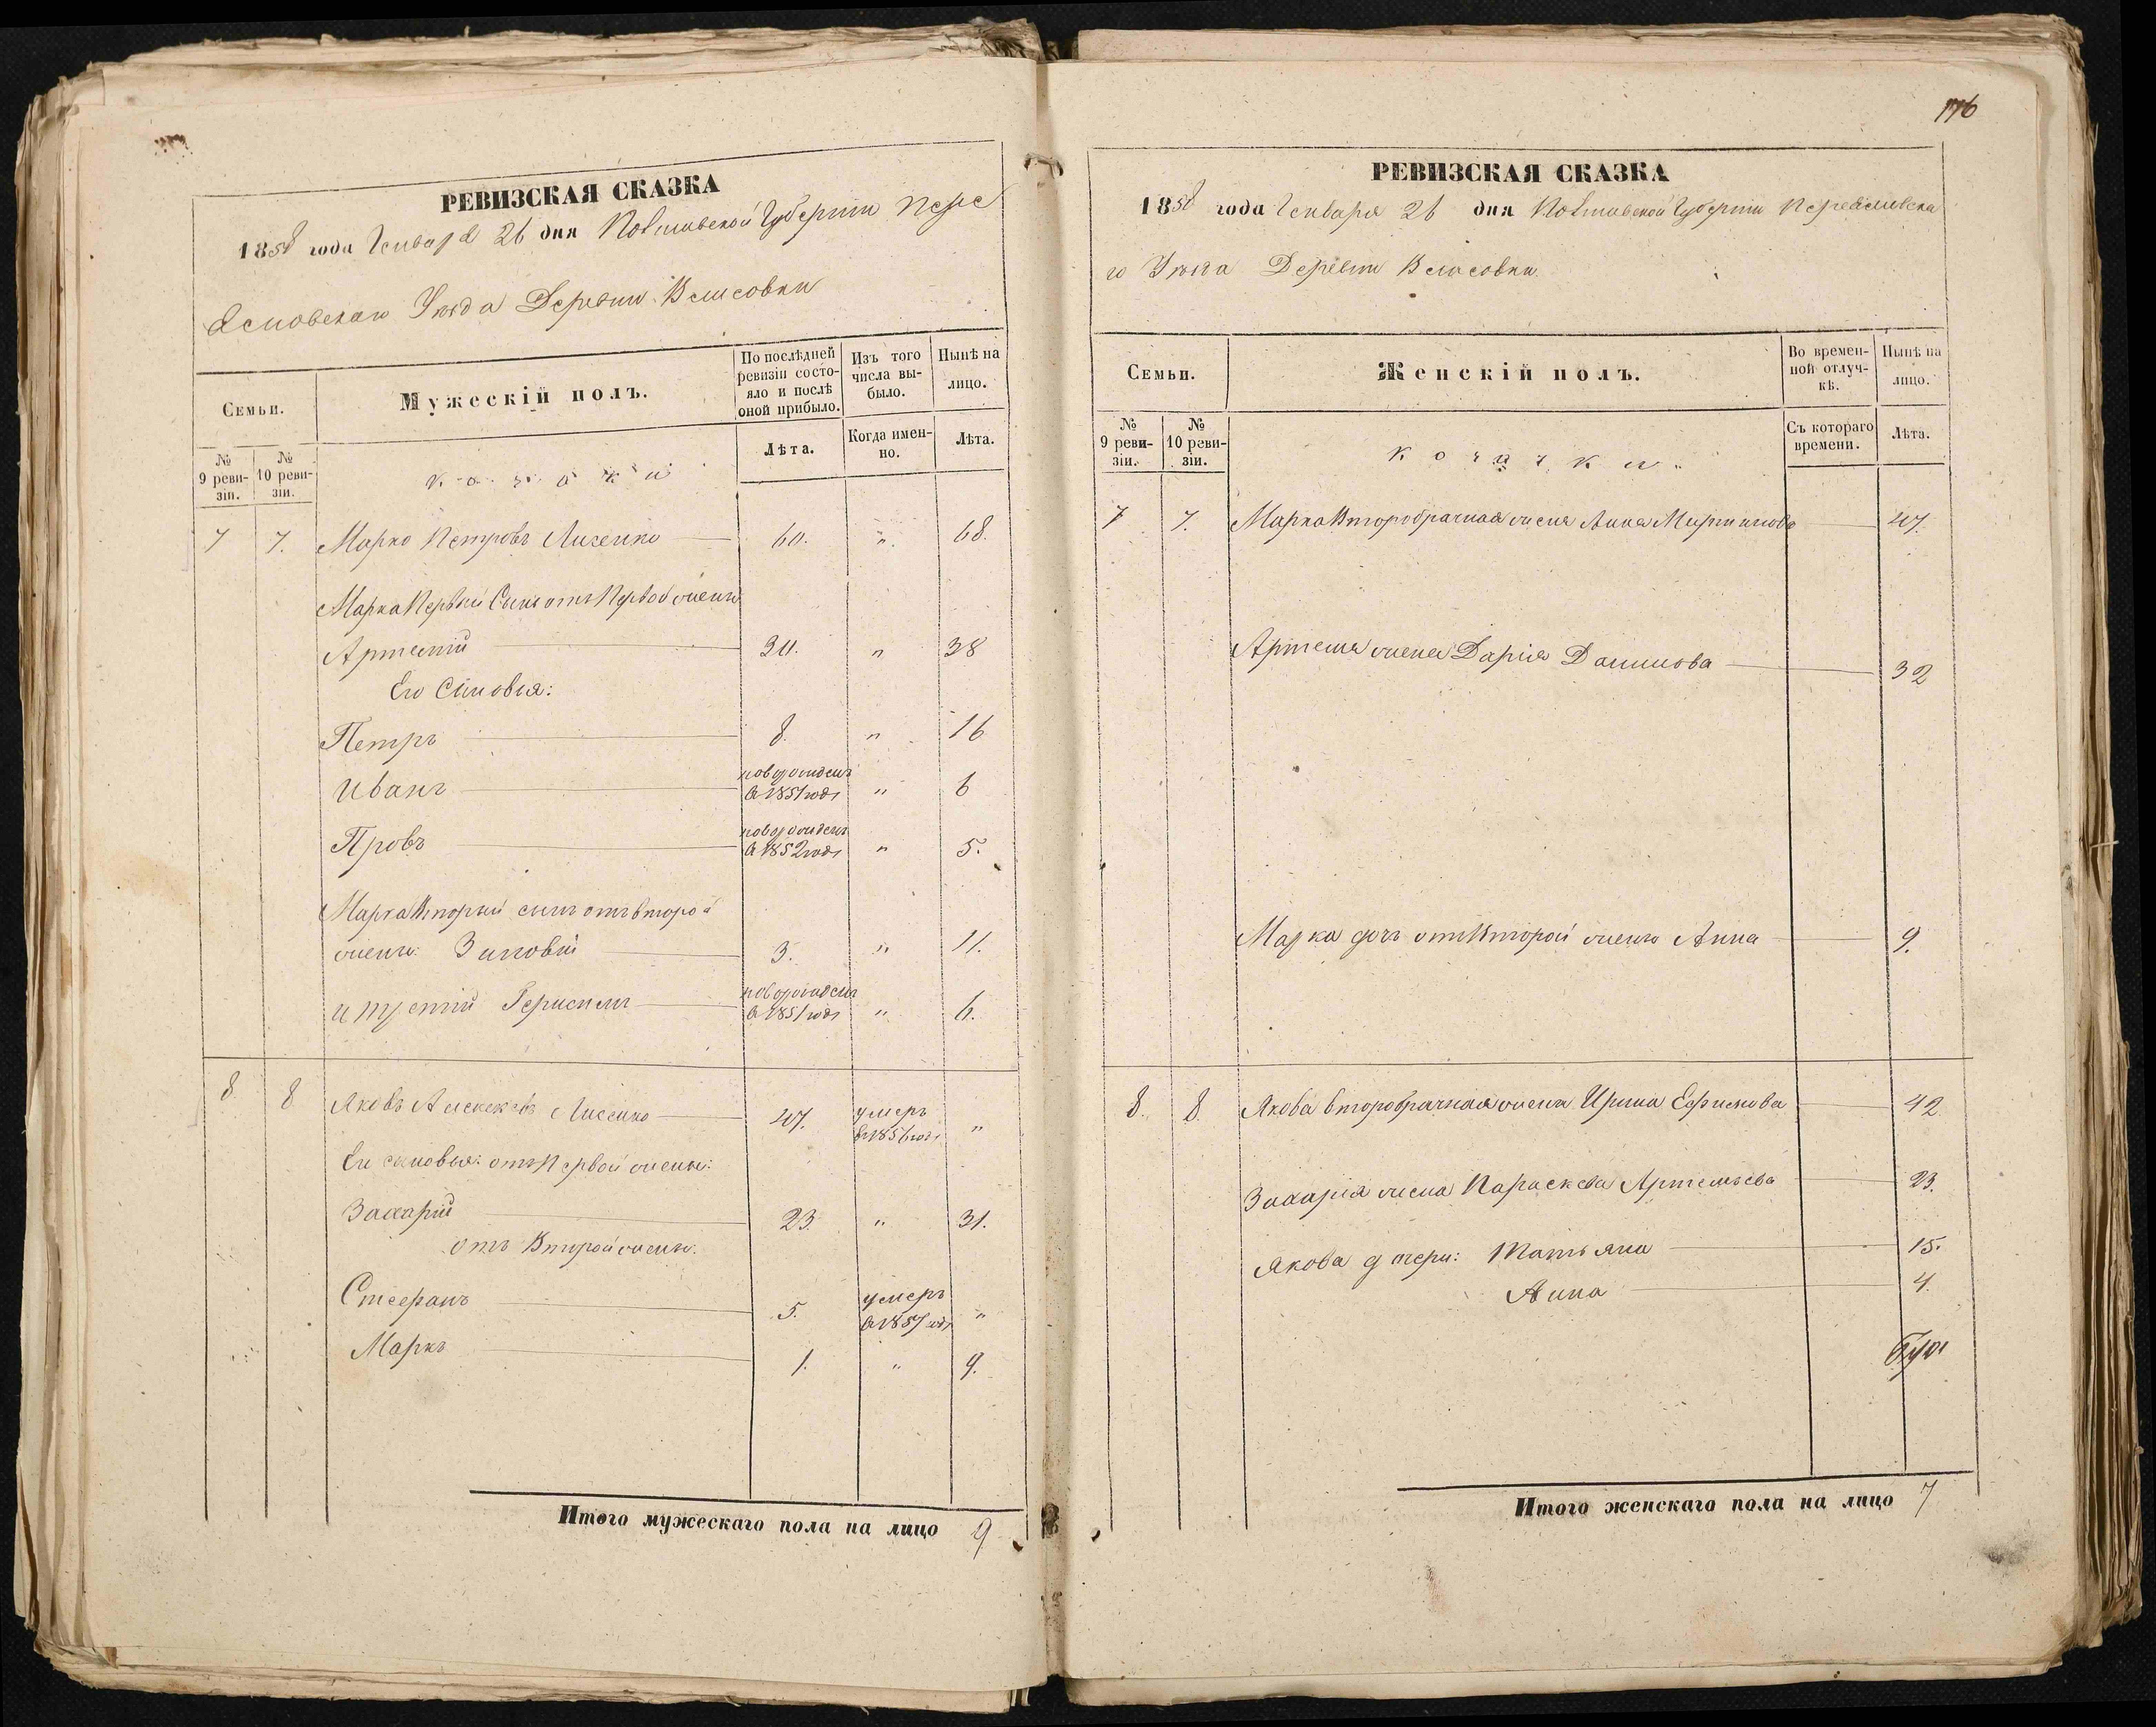 РЕВИЗСКАЯ СКАЗКА
1858 года Генваря 26 дня Полтавской Губерніи Пере
яславскаго Уѣзда Деревни Власовки
Семьи.
Мужескій полъ.
По послѣдней ревизіи состояло и послѣ оной прибыло.
Изъ того числа выбыло.
Нынѣ на лицо.
№ 9 ревизіи.
№ 10 ревизіи.
козаки
Лѣта.
Когда именно.
Лѣта.
7 7. Марко Петровъ Лисенко 60. " 68.
Марка Первый Сынъ отъ Первой жены
Артемій 30. " 38
Его Сыновья:
Петръ 8. " 16
Иванъ новорожденъ в 1851 годѣ " 6
Провъ новорожденъ в 1852 годѣ " 5.
Марка Вторый сынъ отъ второй
жены Зиновій 3. " 11.
и третій новорожденъ в 1851 годѣ " 6.
8 8 Яковъ Алексеевъ Лисенко 47. умеръ в 1856 годѣ "
Ег сыновья: отъ Первой жены:
Захарій 23. " 31.
отъ Второй жены.
Стефанъ 5. умеръ в 1857 годѣ "
Марко 1. " 9.
Итого мужескаго пола на лицо 9
116
РЕВИЗСКАЯ СКАЗКА
1858 года Генваря 26 дня Полтавской Губерніи Переяславска
го Уѣзда Деревни Власовки
Семьи.
Женскій полъ.
Во временной отлучкѣ.
Нынѣ на лицо.
№ 9 ревизіи.
№ 10 ревизіи.
козачки
Съ котораго времени.
Лѣта.
7 7. Марка Второбрачная жена Анна Мартинова 47.
Артема жена Дарія Данилова 32
Марка дочь отъ Второй жены Анна 9.
8. 8. Якова второбрачная жена Ирина Ефимова 42
Захарія жена Параскева Артемьева 23.
Якова дочери: Татьяна 15.
Анна 4.
Итого женскаго пола на лицо 7